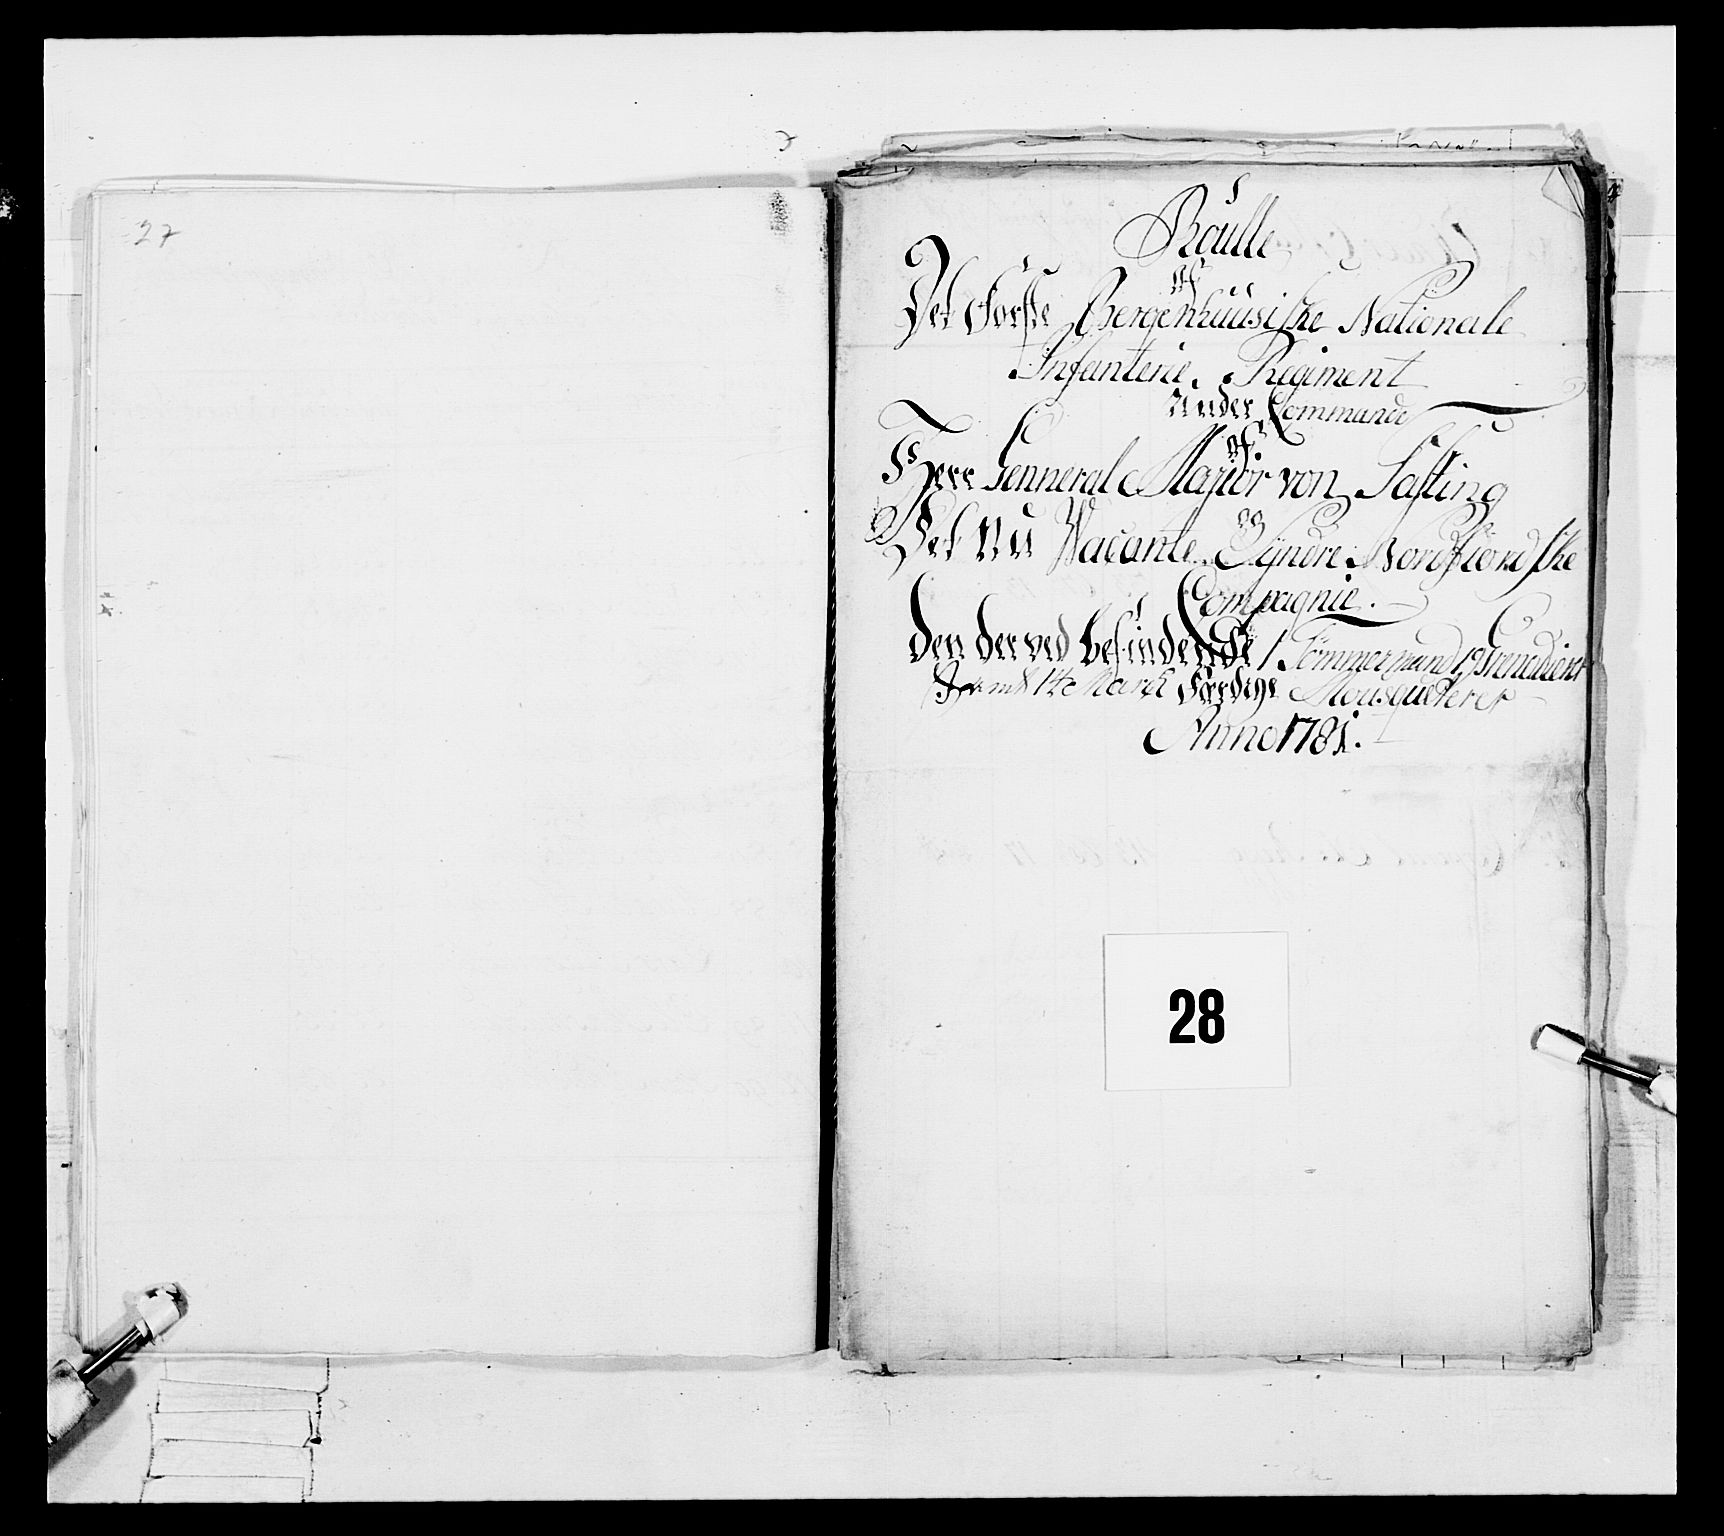 27
Roulle
af
Det Første Bergenhuusiske Nationale
Infanterie Regiment
Under Commando
af
Herr Genneral Majior von Sasting
og
Det Nu Vacante Syndre Nordfiordske
Compagnie.
den derved befindende 1 Tømmermand, 19 Grenadierer
Samt 14 March færdige Mousqueterer
Anno 1781.
28